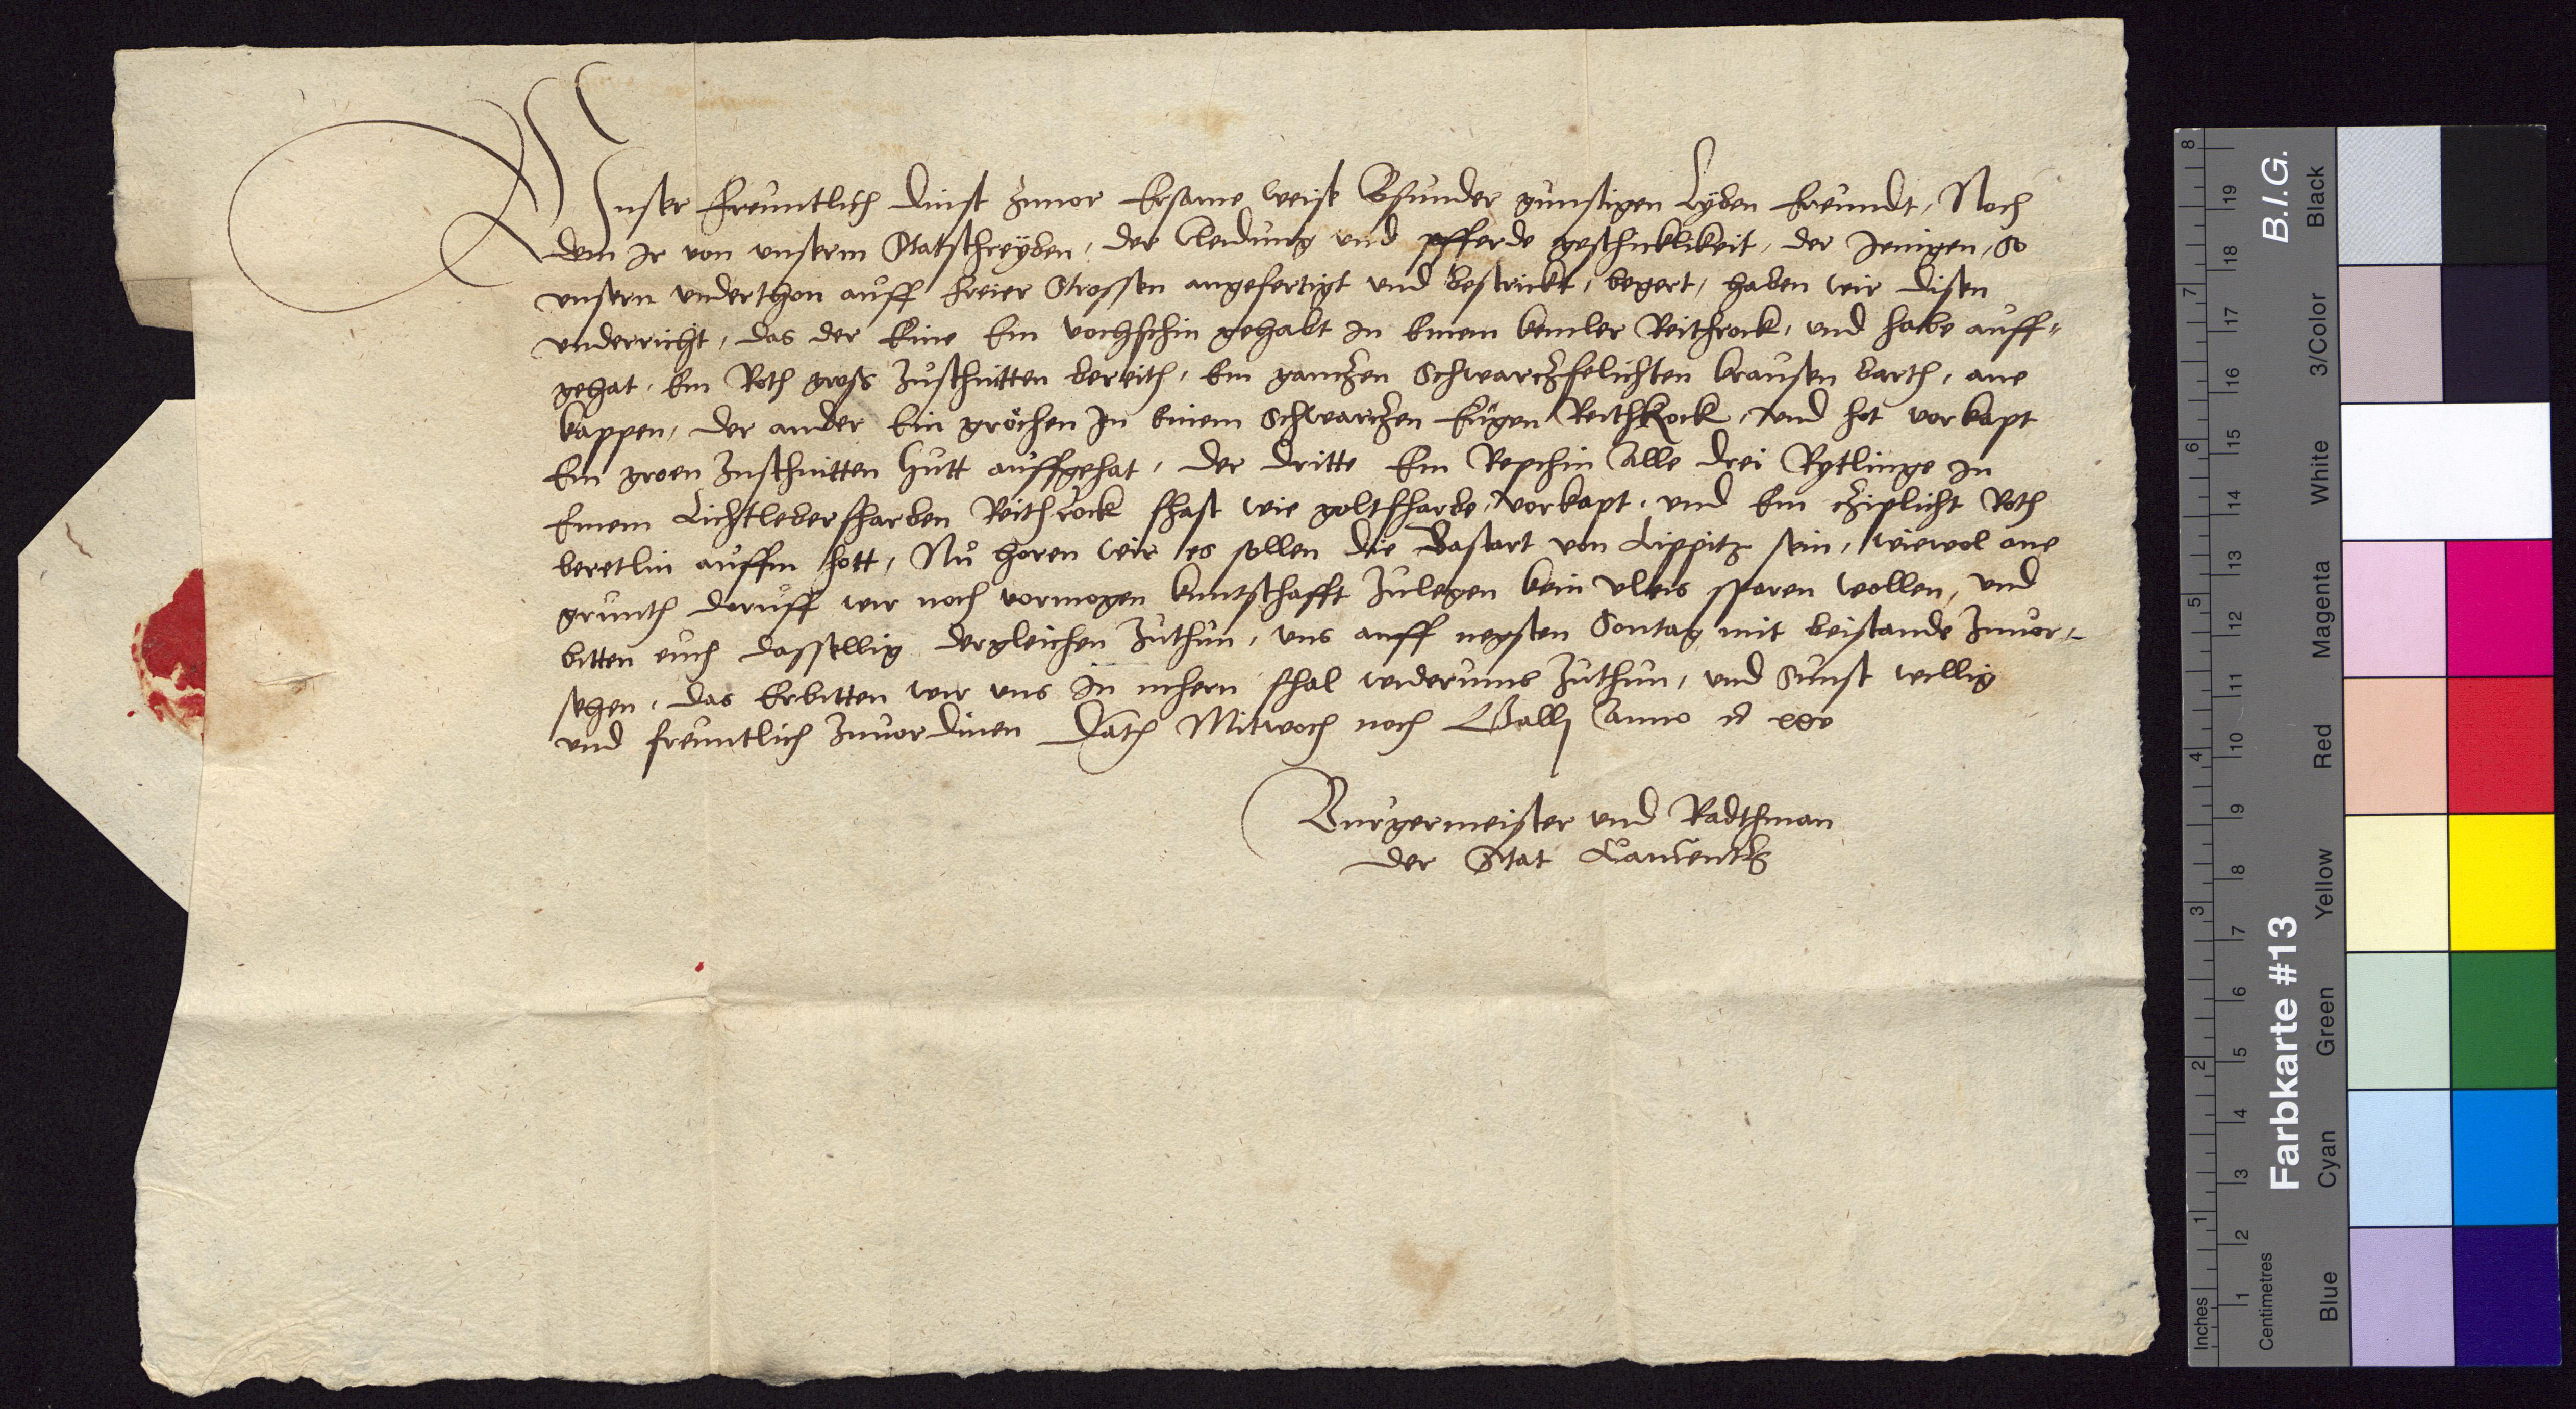 Unser freuntlich dinst zuuor Ersame weise Bsunder gunstigen lyben freundt, Noch
dem ir von unserm Statschreyben, der cleidung und pfferde geschicklikeit, der jenigen, So
unsern underthon auff freier Strossen angefertigt und bestrickt, begert, haben wir disen
underricht, das der Eine Ein gehabt in Einem kemler Reithrock, und habe auff-
gehat, Ein Roth gross zuschnitten bereith, Ein gantzen Schwarczfelichten krausen barth, ane
kappen, der ander Ein grochen In Einem Schwartzen Reithrock, und hot vorkapt
Ein groen zuschnitten Hutt auffgehat, der dritte Ein Alle drei Rytlinge in
Einem Lichtlederfharben Reithrock fhast wie goltfharbe, vorkapt, und Ein cziplicht Roth
beretlin auffm hott, Nu horen wir es sollen die Bastart von Lippitz sein, wiewol one
grunth doruff wir noch vormogen kuntschafft zulegen kein vleis sparen wollen, und
bitten euch dassellig dergleichen zuthun, uns auff negsten Sontag mit beistande zuuor-
sehen, das Erbitten wir uns in mehern fhal widerumb zuthun, und Sunst willig
und freuntlich zuuordinen Dath Mitwoch noch Galli Anno xxv
Burgermeister und Radthman
der Stat Camentz
8
7
6
5
4
3
2
1
Inches
19
18
17
16
15
14
13
12
11
10
9
8
7
6
5
4
3
2
1
Centimetres
Farbkarte #13
B.I.G.
Blue
Cyan
Green
Yellow
Red
Magenta
White
3/Color
Black